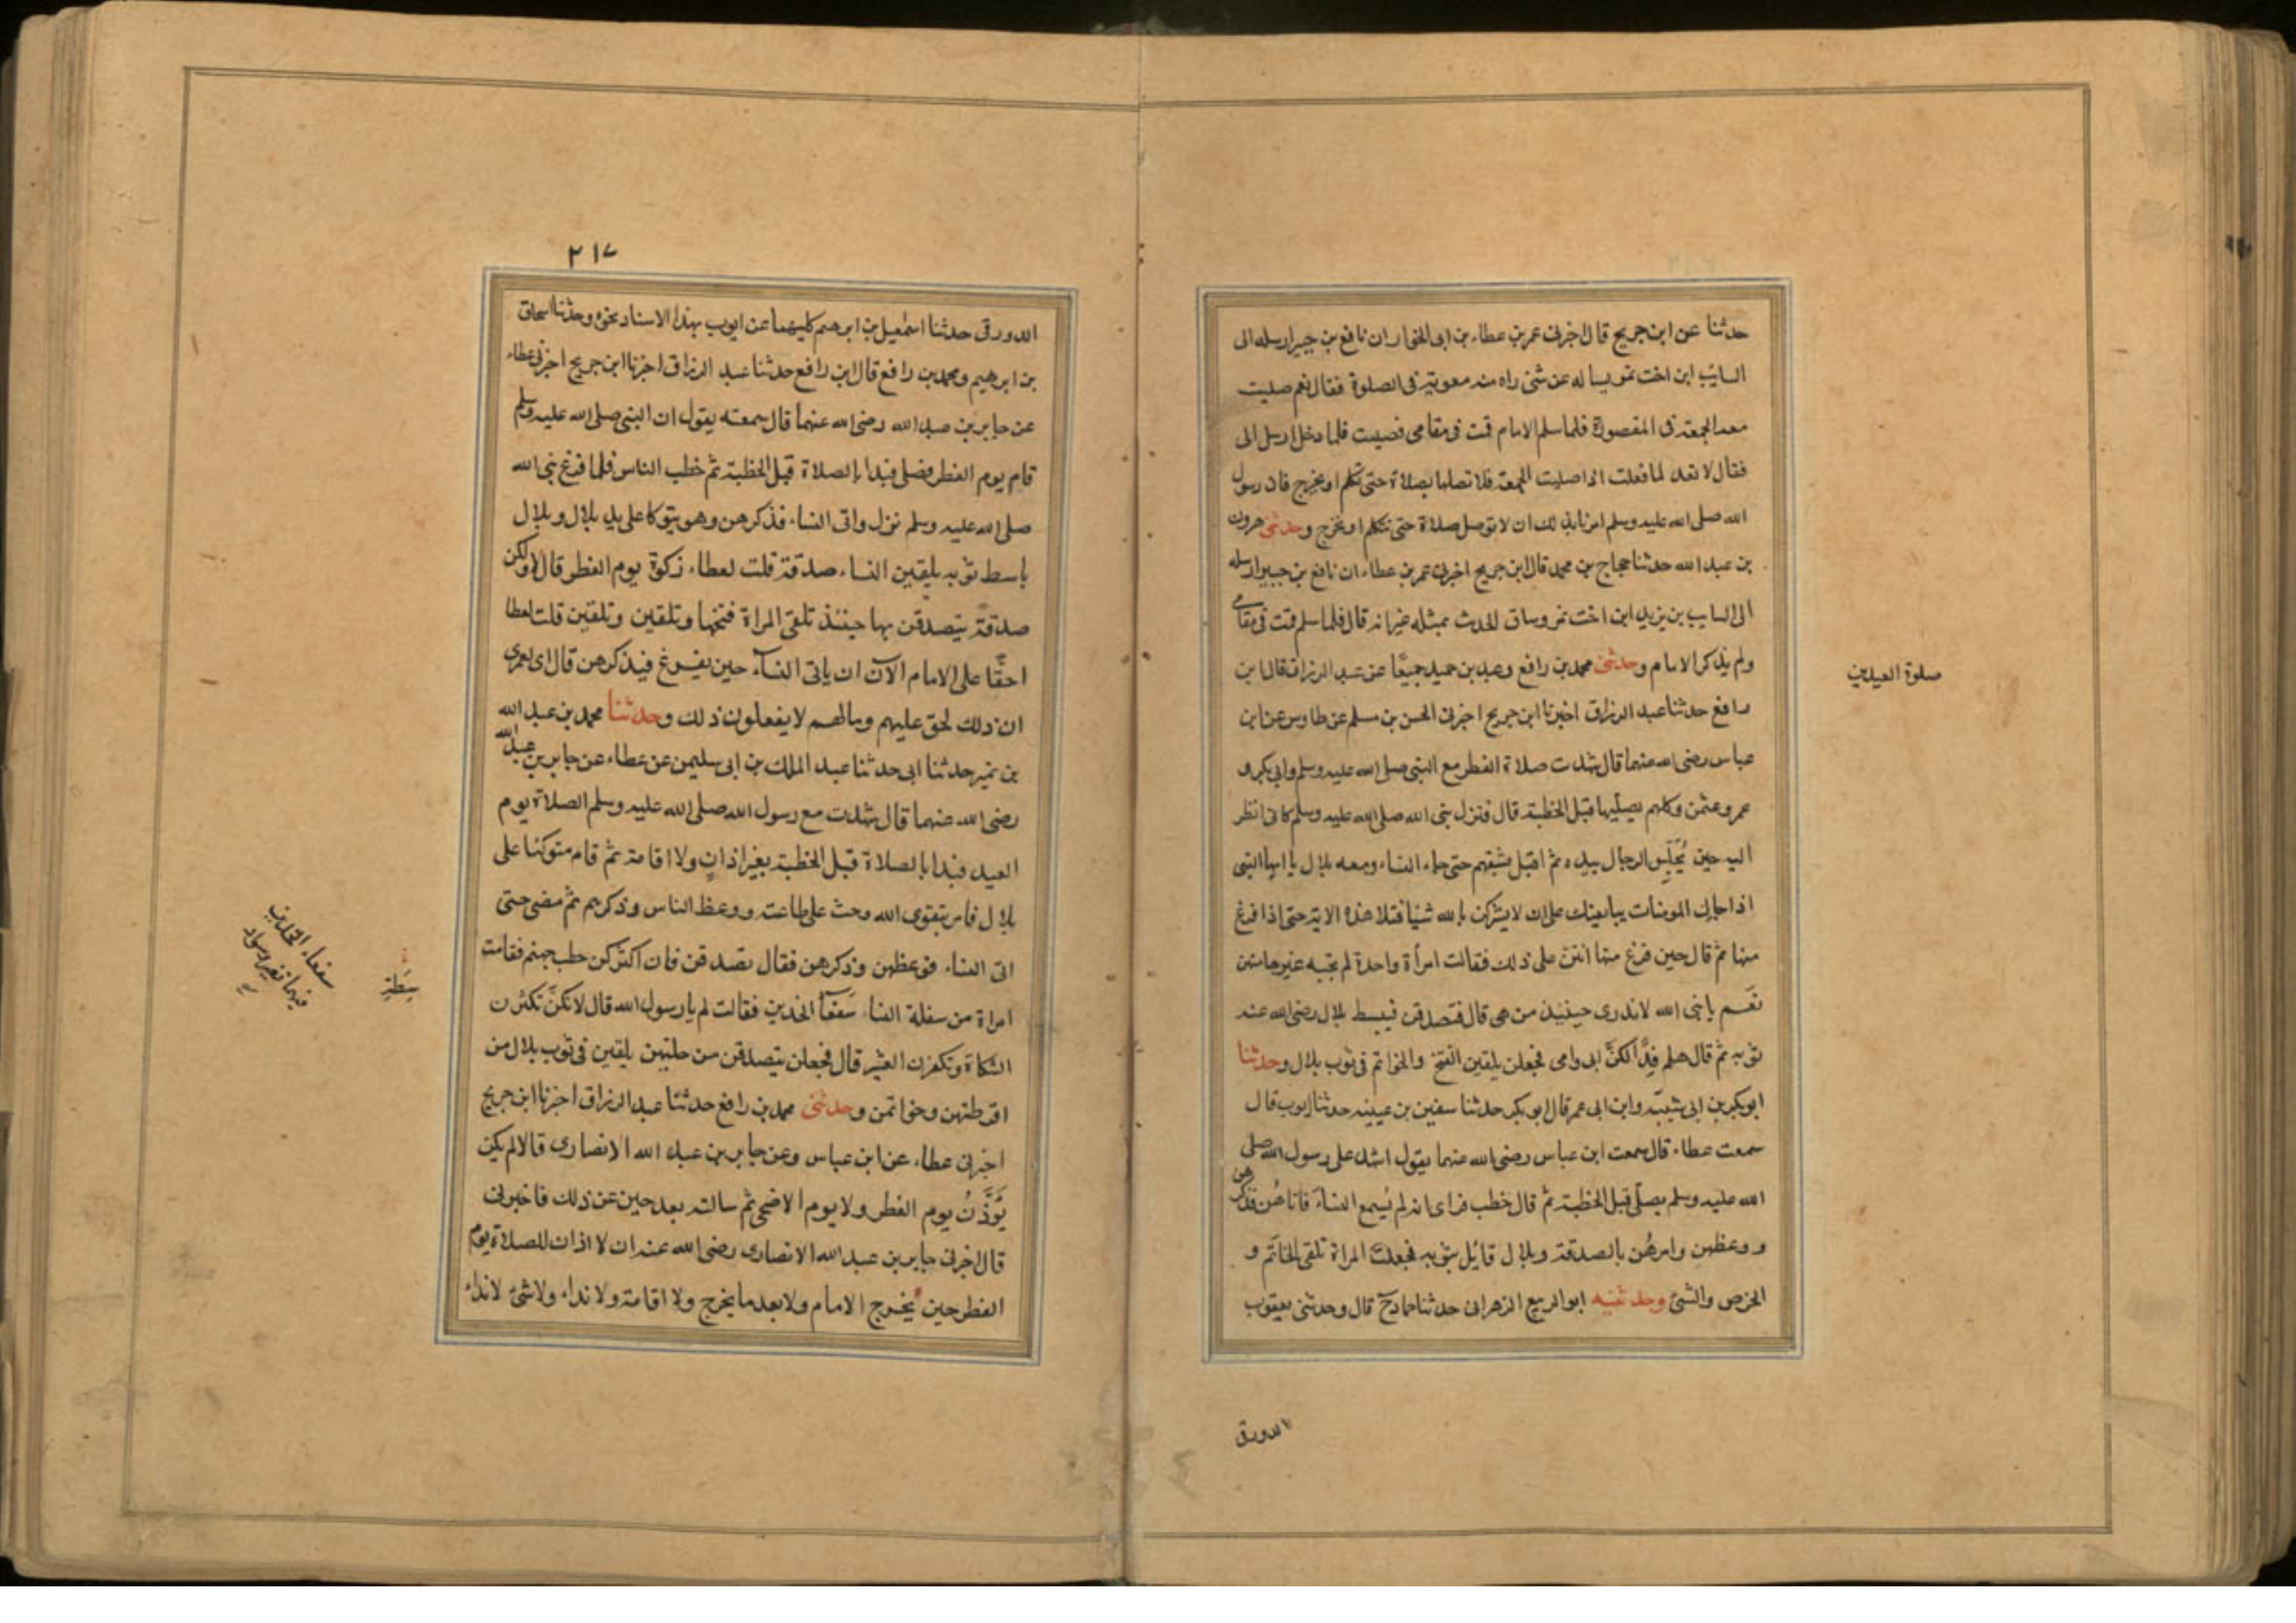 حدثنا عن ابن جريج قال اخبرنى عمر بن عطاء بن ابى الخوار ان نافع بن جبير ارسله الى
السائب ابن اخت نمر يساله عن شئ راه منه معوية فى الصلوة فقال نعم صليت
معه الجمعة فى المقصورة فلما سلم الامام قمت فى مقامى فصليت فلما دخل ارسل الى
فقال لا تعد لما فعلت اذا صليت الجمعة فلا تصلها بصلاة حتى تكلم او تخرج فان رسول
الله صلى الله عليه وسلم امرنا بذلك ان لا توصل صلاة حتى نتكلم او نخرج وحدثنى هرون
بن عبد الله حدثنا حجاج بن محمد قال ابن جريج اخبرنى عمر بن عطاء ان نافع بن جبير ارسله
الى السايب بن يزيد ابن اخت نمر وساق الحديث بمثله غير انه قال فلما سلم قمت فى مقامى
ولم يذكر الامام وحدثنى محمد بن رافع وعبد بن حميد جميعًا عن عبد الرزاق قال ابن
رافع حدثنا عبد الرزاق اخبرنا ابن جريج اخبرنى الحسن بن مسلم عن طاوس عن ابن
عباس رضى الله عنهما قال شهدت صلاة الفطر مع النبى صلى الله عليه وسلم وابى بكر و
عمر وعثمن وكلهم يصليها قبل الخطبة قال فنزل نبى الله صلى الله عليه وسلم كانى انظر
اليه حين يُجَلِّس الرجال بيده ثم اقبل يشقهم حتى جاء النساء ومعه بلال يا ايها النبى
اذا جاءك المومنات يبايعنك على ان لا يشركن بالله شيئا فتلا هذه الاية حتى اذا فرغ
منها ثم قال حين فرغ منها انتن على ذلك فقالت امرأة واحدة لم يجبه غيرها منهن
نَعَم يا نبى الله لا ندرى حينئيذ من هى قال فتصدقن فبسط بلال رضى الله عنه
ثوبه ثم قال هلم فِدًا لكنَّ ابى وامى فجعلن يلقين الفتخ والخواتم فى ثوب بلال وحدثنا
ابو بكر بن ابى شيبة وابن ابى عمر قال ابو بكر حدثنا سفين بن عيينه حدثنا ايوب قال
سمعت عطاء قال سمعت ابن عباس رضى الله عنهما يقول اشهد على رسول الله صلى
الله عليه وسلم يصلى قبل الخطبة ثم قال خطب فراى انه لم يُسمع النساءَ فاتاهُن فذكرهن
ووعظهن وامرهُن بالصدقة وبلال قائل بثوبه فجعلتَ المراة تلقى الخاتَم و
الخرص والشئ وحدثنيه ابو الربيع الزهرانى حدثنا حماد ح قال وحدثنى يعقوب
صلوة العيدين
الدورقى
٢١٧
الدورقى حدثنا اسمٰعيل بن ابرهيم كليهما عن ايوب بهذا الاسناد نحوه وحدثنا اسحاق
بن ابرهيم ومحمد بن رافع قال ابن رافع حدثنا عبد الرزاق اخبرنا ابن جريج اخبرنى عطاء
عن جابر بن عبد الله رضى الله عنهما قال سمعته يقول ان النبى صلى الله عليه وسلم
قام يوم الفطر فصلى فبدا بالصلاة قبل الخطبة ثم خطب الناس فلما فرغ نبى الله
صلى الله عليه وسلم نزل واتى النساء فذكرهن وهو يتوكا على يد بلال وبلال
باسط ثوبه يلقين النساء صدقة قلت لعطاء زكوة يوم الفطر قال لا ولكن
صدقةً يتصدقن بها حينئذ تلقى المراة فتخها وتلقين وتلقين قلت لعطا
احقًّا على الامام الآن ان ياتى النسآء حين يفرغ فيذكرهن قال اى لعمرى
ان ذلك لحق عليهم وما لهم لا يفعلون ذلك وحدثنا محمد بن عبد الله
بن نمير حدثنا ابى حدثنا عبد الملك بن ابى سليمن عن عطاء عن جابر بن عبد الله
رضى الله عنهما قال شهدت مع رسول الله صلى الله عليه وسلم الصلاة يوم
العيد فبدا بالصلاة قبل الخطبة بغير اذانٍ ولا اقامة ثم قام متوكئا على
بلال فامر بتقوى الله وحث على طاعته ووعظ الناس وذكرهم ثم مضى حتى
اتى النساء فوعظهن وذكرهن فقال تصدقن فان اكثركن حطب جهنم فقامت
امراة من سفلة النساء سَفعآ الخدين فقالت لم يا رسول الله قال لانكنَّ تكثرن
الشكاة وتكفرن العشير قال فجعلن يتصدقن من حليهن يلقين فى ثوب بلال من
اقرطتهن وخواتمن وحدثنى محمد بن رافع حدثنا عبد الرزاق اخبرنا ابن جريج
اخبرنى عطاء عن ابن عباس وعن جابر بن عبد الله الانصارى قالا لم يكن
يُؤَذَّنُ يوم الفطر ولا يوم الاضحى ثم سالته بعد حين عن ذلك فاخبرنى
قال اخبرنى جابر بن عبد الله الانصارى رضى الله عنه ان لا اذان للصلاة يوم
الفطر حين يخرج الامام ولا بعد ما يخرج ولا اقامة ولا نداء ولا شئ لا نداء
سِطَةِ
سفعاء الخدين
فيهما تغير وسواد